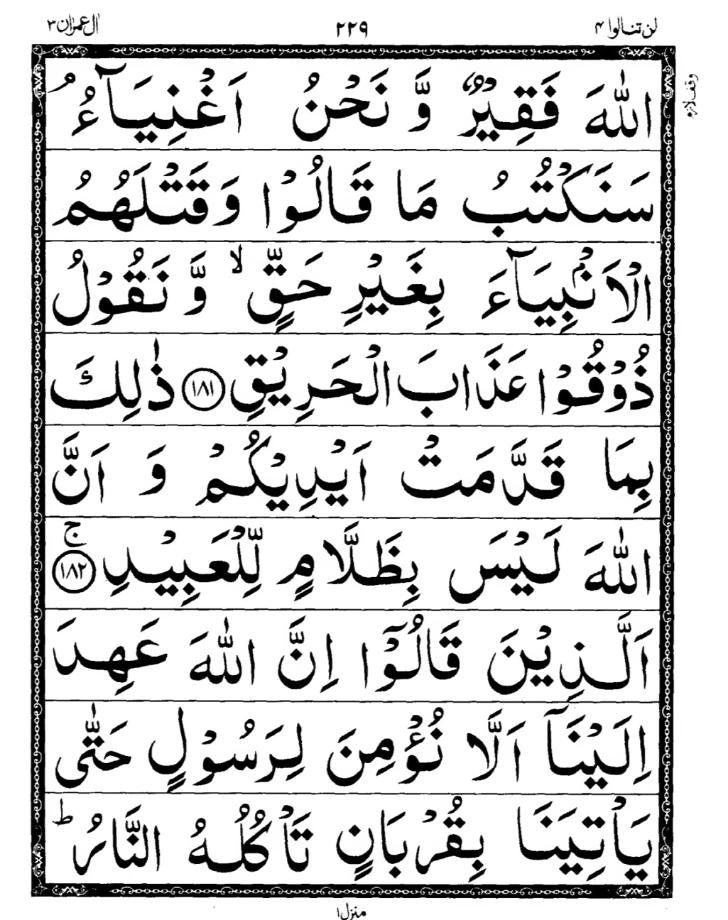 لن تنالوا ۴ ۲۲۹ ال عمران ۳
وقف لازم
اللّٰهَ فَقِيْرٌ وَّ نَحْنُ اَغْنِيَآءُ ۘ
سَنَكْتُبُ مَا قَالُوْا وَقَتْلَهُمُ
الْاَنْۢبِيَآءَ بِغَيْرِ حَقٍّ ۙ وَّ نَقُوْلُ
ذُوْقُوْا عَذَابَ الْحَرِيْقِ ﴿۱۸۱﴾ ذٰلِكَ
بِمَا قَدَّمَتْ اَيْدِيْكُمْ وَ اَنَّ
اللّٰهَ لَيْسَ بِظَلَّامٍ لِّلْعَبِيْدِ ﴿۱۸۲﴾ ۚ
اَلَّذِيْنَ قَالُوْٓا اِنَّ اللّٰهَ عَهِدَ
اِلَيْنَآ اَلَّا نُؤْمِنَ لِرَسُوْلٍ حَتّٰى
يَاْتِيَنَا بِقُرْبَانٍ تَاْكُلُهُ النَّارُ ؕ
منزل ۱